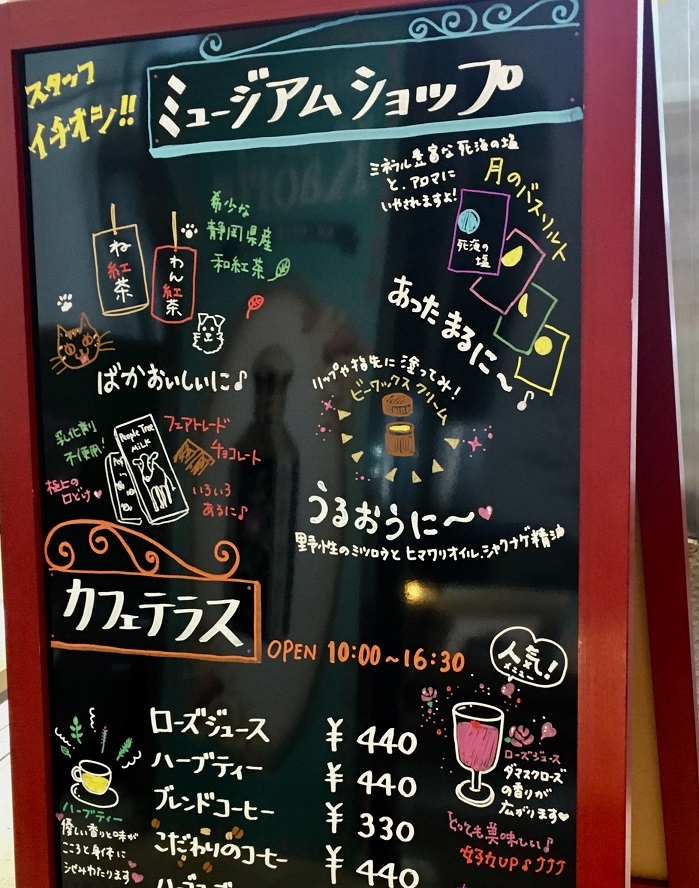 スタッフ
イチオシ!!
ミュージアムショップ
ミネラル豊富な死海の塩
と、アロマに
いやされますよ!
月のバスソルト
死海の
塩
あったまるに〜♪
希少な
静岡県産
和紅茶
ね
紅
茶
わん
紅
茶
ばかおいしいに♪
リップや指先に塗ってみ!
ビーワックスクリーム
うるおうに〜
野性のミツロウとヒマワリオイル、シャクナゲ精油
乳化剤
不使用!
People Tree
MILK
フェアトレード
チョコレート
極上の
口どけ♥
いろいろ
あるに♪
カフェテラス
OPEN 10:00〜16:30
人気!
メニュー
ローズジュース ¥440
ハーブティー ¥440
ブレンドコーヒー ¥330
こだわりのコーヒー ¥440
ハーブティー
優しい香りと味が
こころと身体に
しみわたります♥
ローズジュース
ダマスクローズ
の香りが
広がります♥
とっても美味しい♪
女子力UP♪